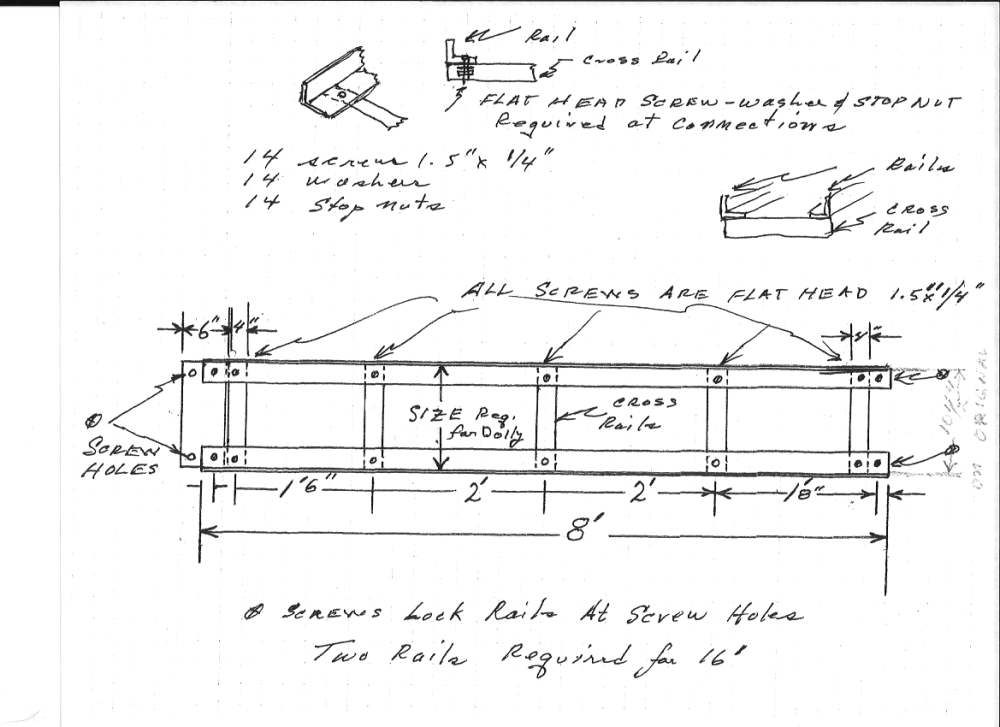 Rail
Cross Rail
FLAT HEAD SCREW-washer & STOP NUT
Required at Connections
14 screws 1.5" x 1/4"
14 washers
14 Stop nuts
Rails
CROSS
Rail
ALL SCREWS ARE FLAT HEAD 1.5"x 1/4"
6"
4"
4"
SIZE Req.
for Dolly
CROSS
Rails
Ø
SCREW
HOLES
Ø
Ø
10 1/4"
ON ORIGINAL
1'6"
2'
2'
1'8"
8'
Ø SCREWS Lock Rails At Screw Holes
Two Rails Required for 16'